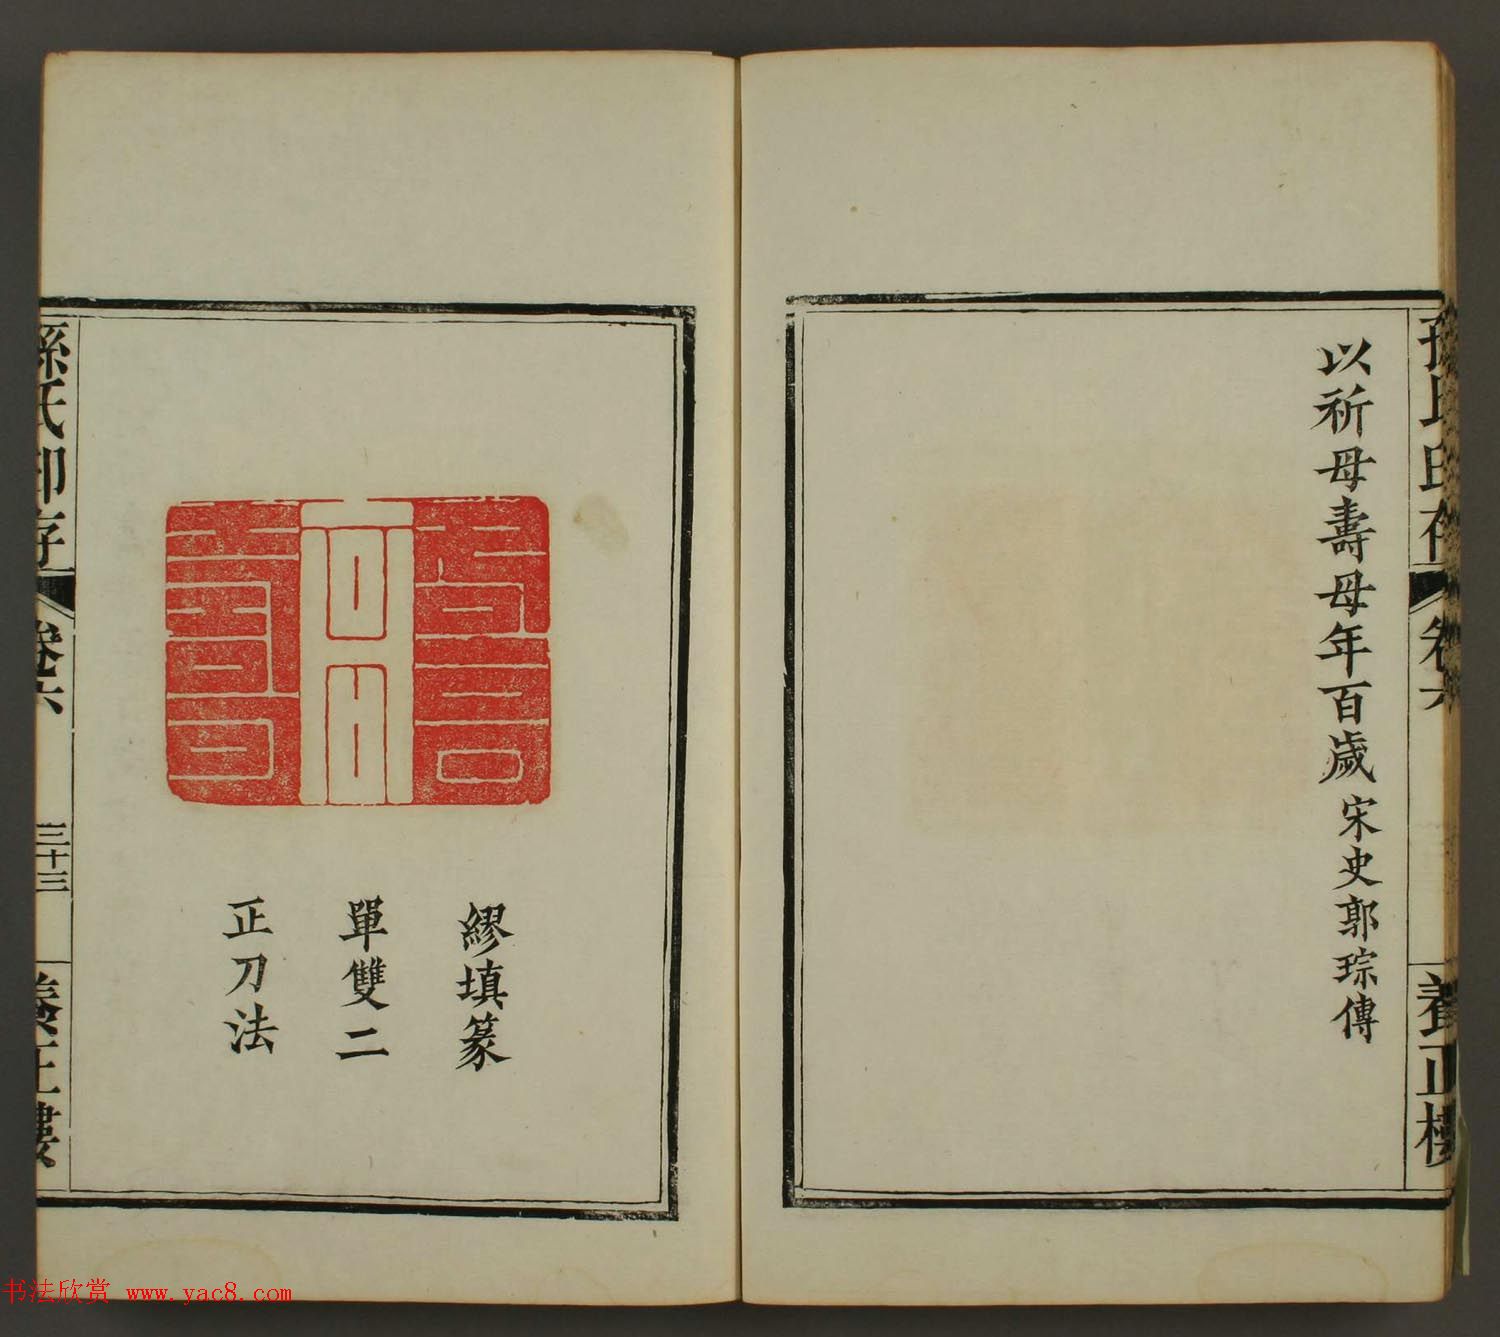 孫氏印存
卷六
養正樓
以祈母壽母年百歲 宋史郭琮傳
繆填篆
單雙二
正刀法
孫氏印存
卷六
三十三
養正樓
书法欣赏 www.yac8.com